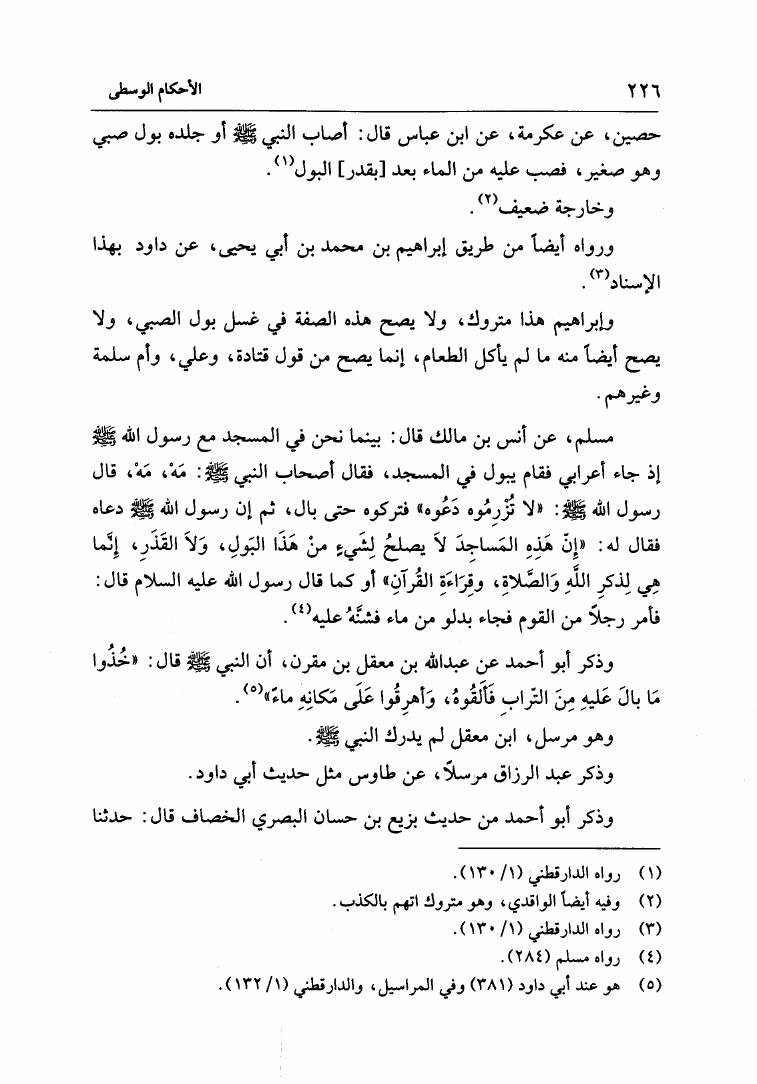 ٢٢٦ الأحكام الوسطى
حصين، عن عكرمة، عن ابن عباس قال: أصاب النبي ﷺ أو جلده بول صبي
وهو صغير، فصب عليه من الماء بعد [بقدر] البول(١).
وخارجة ضعيف(٢).
ورواه أيضاً من طريق إبراهيم بن محمد بن أبي يحيى، عن داود بهذا
الإسناد(٣).
وإبراهيم هذا متروك، ولا يصح هذه الصفة في غسل بول الصبي، ولا
يصح أيضاً منه ما لم يأكل الطعام، إنما يصح من قول قتادة، وعلي، وأم سلمة
وغيرهم.
مسلم، عن أنس بن مالك قال: بينما نحن في المسجد مع رسول الله ﷺ
إذ جاء أعرابي فقام يبول في المسجد، فقال أصحاب النبي ﷺ: مَهْ، مَهْ، قال
رسول الله ﷺ: «لا تُزْرِمُوه دَعُوه» فتركوه حتى بال، ثم إن رسول الله ﷺ دعاه
فقال له: «إِنَّ هَذِهِ المَساجِدَ لاَ يصلحُ لِشَيءٍ منْ هَذَا البَولِ، وَلاَ القَذَرِ، إِنَّما
هِي لِذكرِ اللَّهِ وَالصَّلاةِ، وقِرَاءَةِ القُرآنِ» أو كما قال رسول الله عليه السلام قال:
فأمر رجلاً من القوم فجاء بدلو من ماء فشنَّهُ عليه(٤).
وذكر أبو أحمد عن عبدالله بن معقل بن مقرن، أن النبي ﷺ قال: «خُذُوا
مَا بالَ عَليهِ مِنَ التّرابِ فَأَلقُوهُ، وَأهرِقُوا عَلَى مَكانِهِ ماءً»(٥).
وهو مرسل، ابن معقل لم يدرك النبي ﷺ.
وذكر عبد الرزاق مرسلاً، عن طاوس مثل حديث أبي داود.
وذكر أبو أحمد من حديث بزيع بن حسان البصري الخصاف قال: حدثنا
(١) رواه الدارقطني (١/ ١٣٠).
(٢) وفيه أيضاً الواقدي، وهو متروك اتهم بالكذب.
(٣) رواه الدارقطني (١/ ١٣٠).
(٤) رواه مسلم (٢٨٤).
(٥) هو عند أبي داود (٣٨١) وفي المراسيل، والدارقطني (١/ ١٣٢).